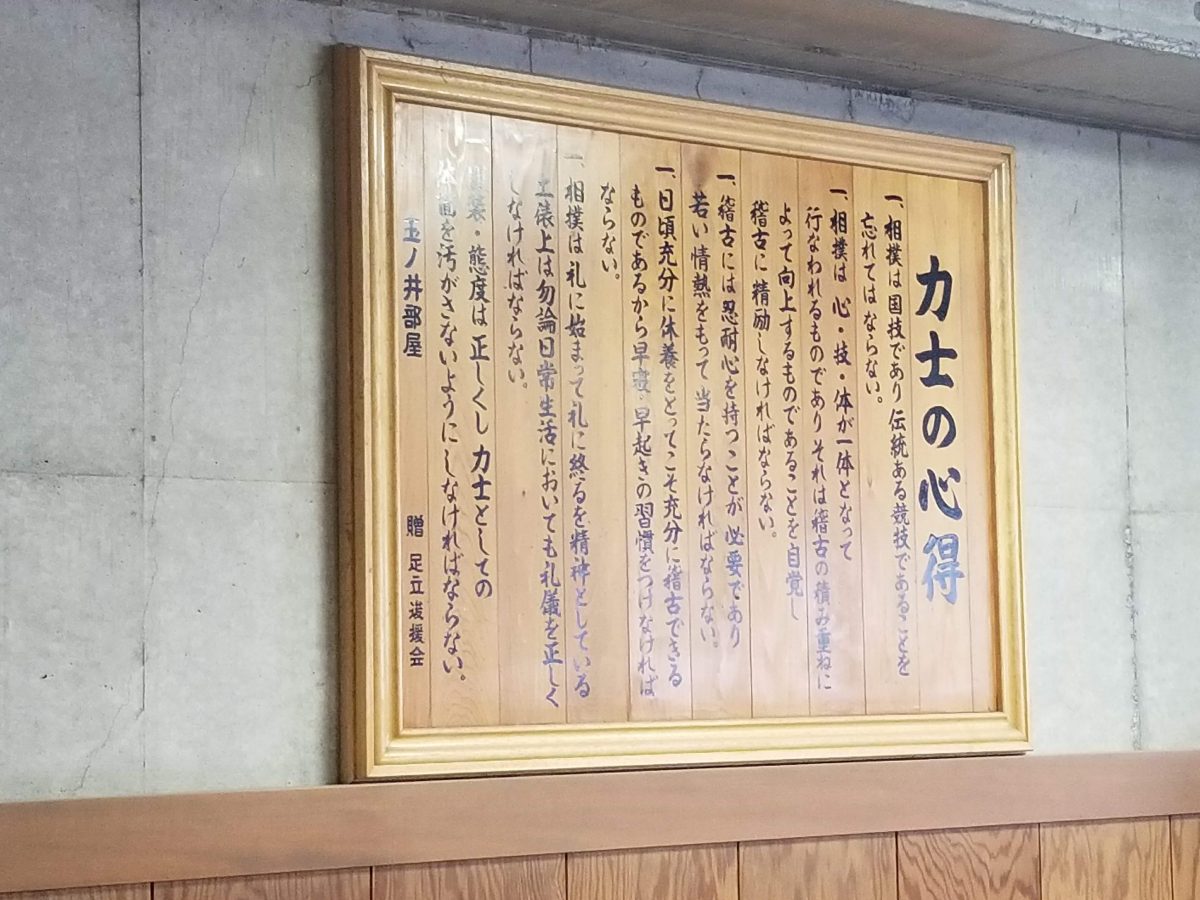 力士の心得
一、相撲は国技であり伝統ある競技であることを
忘れてはならない。
一、相撲は心・技・体が一体となって
行なわれるものでありそれは稽古の積み重ねに
よって向上するものであることを自覚し
稽古に精励しなければならない。
一、稽古には忍耐心を持つことが必要であり
若い情熱をもって当たらなければならない。
一、日頃充分に休養をとってこそ充分に稽古できる
ものであるから早寝・早起きの習慣をつけなければ
ならない。
一、相撲は礼に始まって礼に終るを精神としている
土俵上は勿論日常生活においても礼儀を正しく
しなければならない。
一、服装・態度は正しくし力士としての
を汚がさないようにしなければならない。
玉ノ井部屋
贈 足立後援会